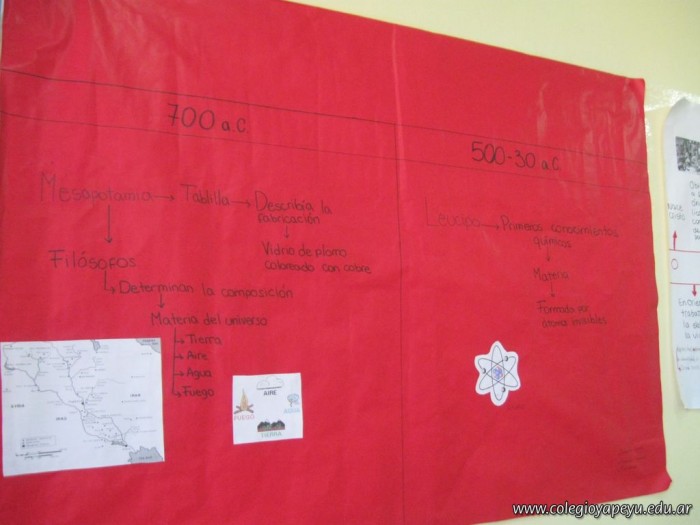 700 a.C.
Mesopotamia → Tablilla → Describía la
fabricación
Vidrio de plomo
coloreado con cobre
Filósofos
Determinan la composición
Materia del universo
Tierra
Aire
Agua
Fuego
AIRE
FUEGO
AGUA
TIERRA
500-30 a.C.
Leucipo → Primeros conocimientos
químicos
Materia
Formada por
átomos invisibles
www.colegioyapeyu.edu.ar